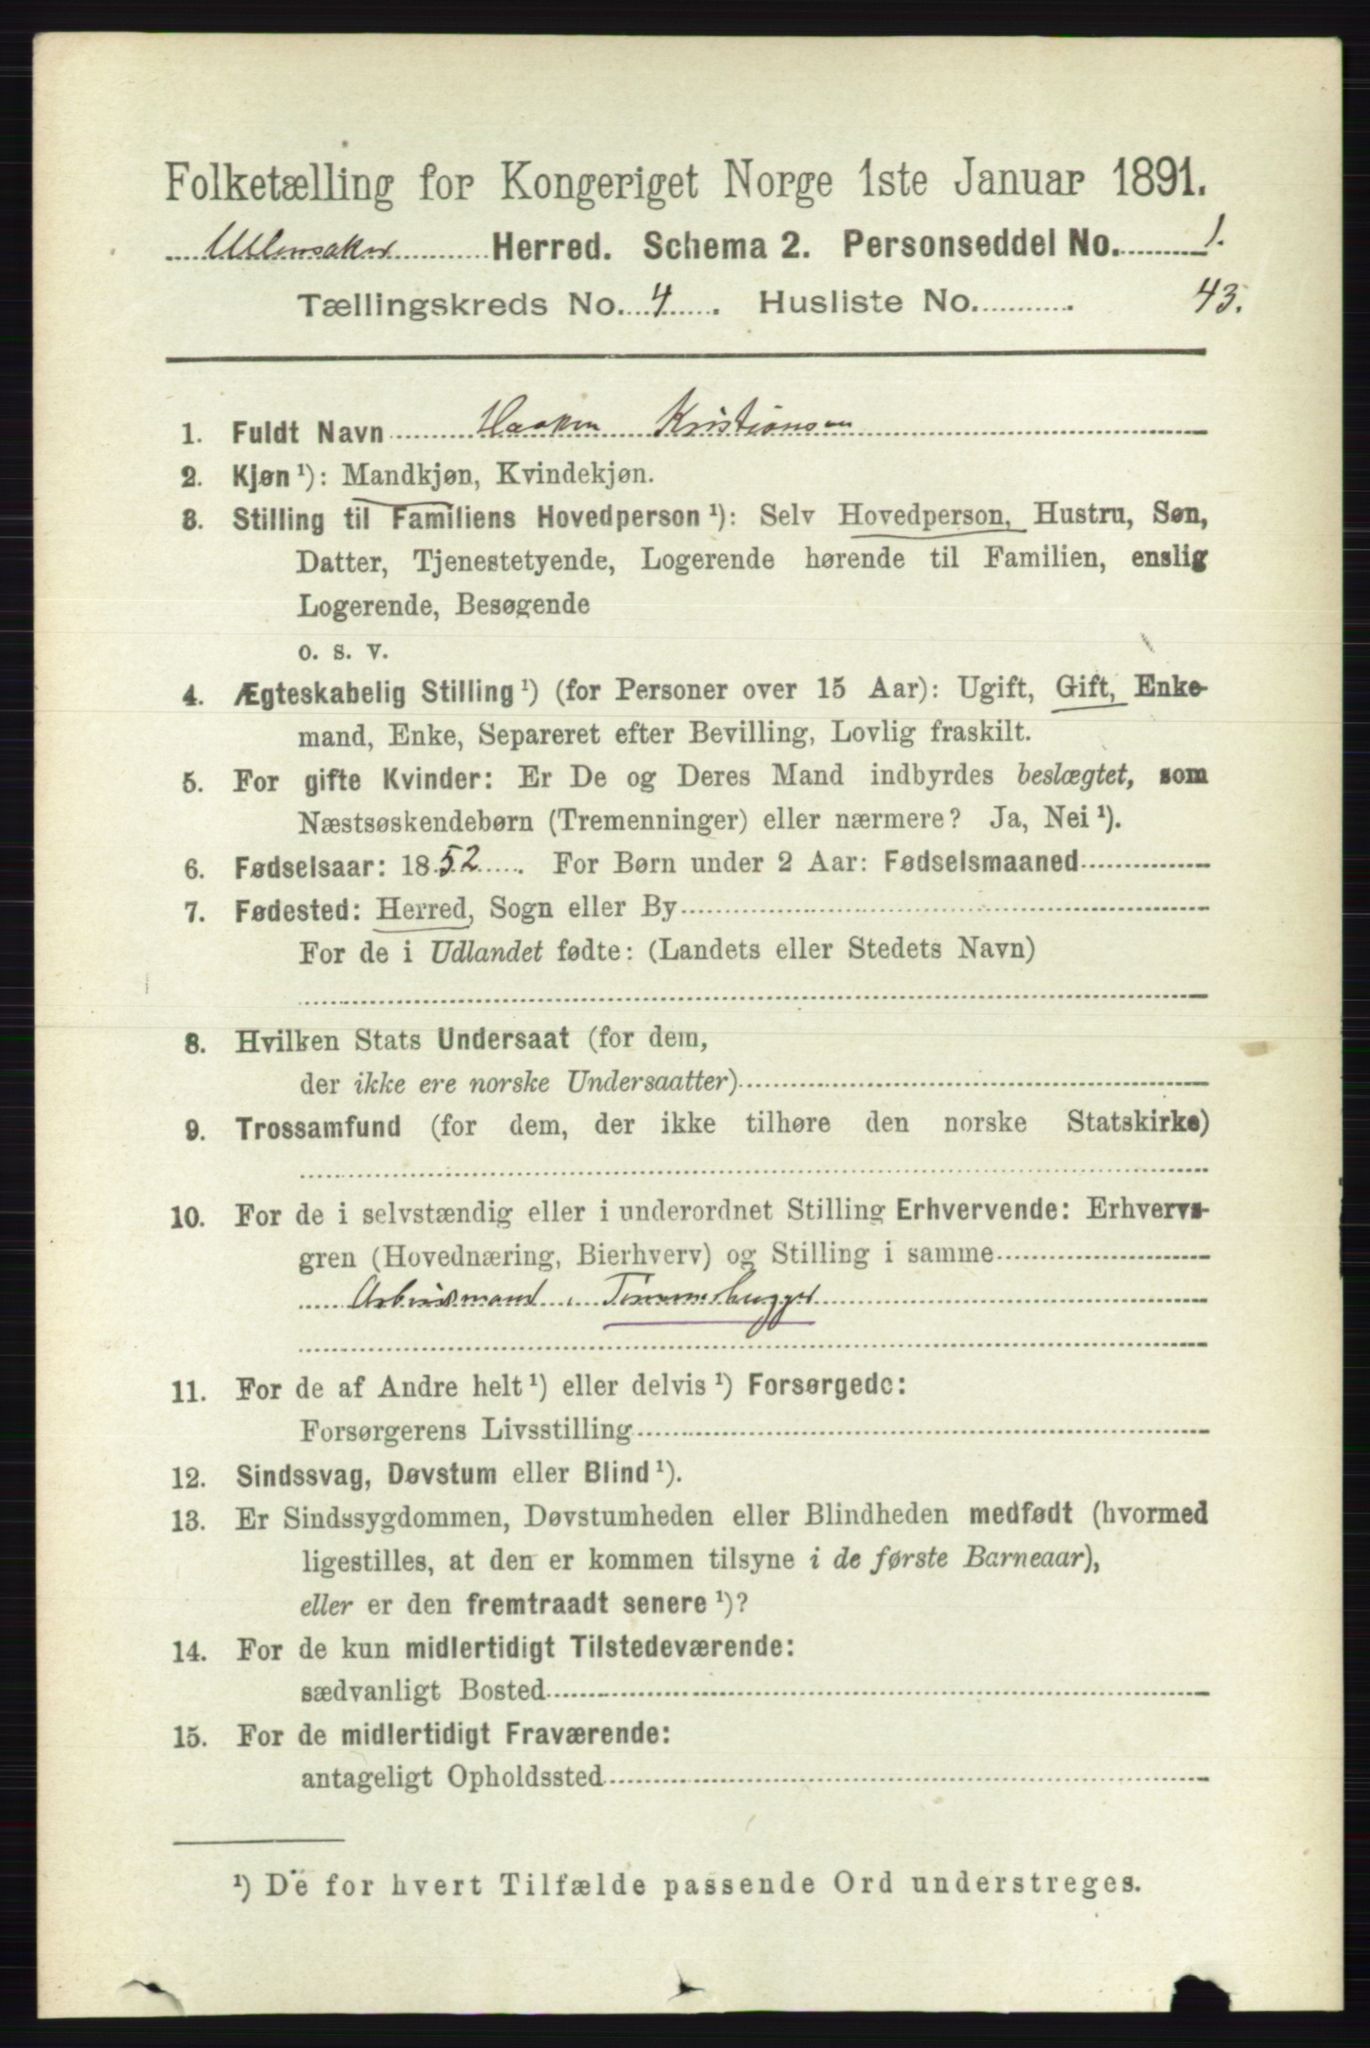 Folketælling for Kongeriget Norge 1ste Januar 1891.
Ullensaker Herred. Schema 2. Personseddel No. 1.
Tællingskreds No. 4. Husliste No. 43.
1. Fuldt Navn Haaken Kristiansen
2. Kjøn ¹): Mandkjøn, Kvindekjøn.
3. Stilling til Familiens Hovedperson ¹): Selv Hovedperson, Hustru, Søn,
Datter, Tjenestetyende, Logerende hørende til Familien, enslig
Logerende, Besøgende
o. s. v.
4. Ægteskabelig Stilling ¹) (for Personer over 15 Aar): Ugift, Gift, Enke-
mand, Enke, Separeret efter Bevilling, Lovlig fraskilt.
5. For gifte Kvinder: Er De og Deres Mand indbyrdes beslægtet, som
Næstsøskendebørn (Tremenninger) eller nærmere? Ja, Nei ¹).
6. Fødselsaar: 1852. For Børn under 2 Aar: Fødselsmaaned
7. Fødested: Herred, Sogn eller By
For de i Udlandet fødte: (Landets eller Stedets Navn)
8. Hvilken Stats Undersaat (for dem,
der ikke ere norske Undersaatter)
9. Trossamfund (for dem, der ikke tilhøre den norske Statskirke)
10. For de i selvstændig eller i underordnet Stilling Erhvervende: Erhvervs-
gren (Hovednæring, Bierhverv) og Stilling i samme
Arbeidsmand, Tømmerhugger
11. For de af Andre helt ¹) eller delvis ¹) Forsørgede:
Forsørgerens Livsstilling
12. Sindssvag, Døvstum eller Blind ¹).
13. Er Sindssygdommen, Døvstumheden eller Blindheden medfødt (hvormed
ligestilles, at den er kommen tilsyne i de første Barneaar),
eller er den fremtraadt senere ¹)?
14. For de kun midlertidigt Tilstedeværende:
sædvanligt Bosted
15. For de midlertidigt Fraværende:
antageligt Opholdssted
¹) De for hvert Tilfælde passende Ord understreges.